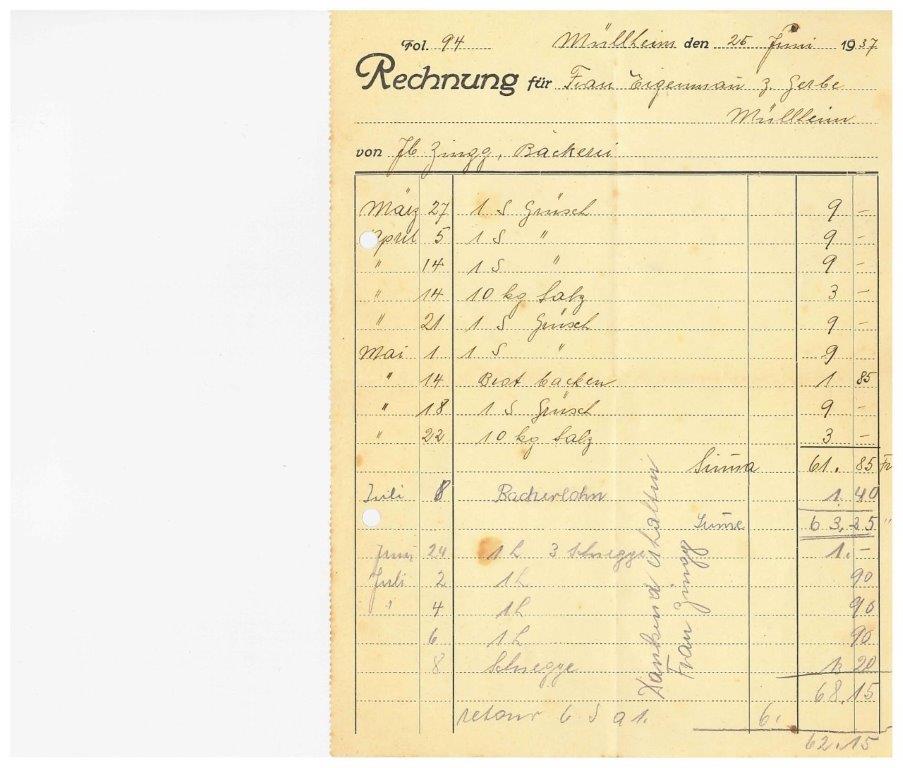 Fol. 94 Müllheim den 25 Juni 1937
Rechnung für Frau Eigenmann z. Gerbe
Müllheim
von Jb Zingg, Bäckerei
März 27 1 S Grüsch 9 –
April 5 1 S " 9 –
" 14 1 S " 9 –
" 14 10 kg Salz 3 –
" 21 1 S Grüsch 9 –
Mai 1 1 S " 9
" 14 Brot backen 1 85
" 18 1 S Grüsch 9 –
" 22 10 kg Salz 3 –
Suma 61. 85 Fr
Juli 8 Bacherlohn 1. 40
Sume 63.25 "
Juni 24 1 L 3 Schnegge 1. –
Juli 2 1 L 90
" 4 1 L 90
6 1 L 90
8 Schnegge 1. 20
68.15
retour 6 S a 1. 6.
62.15
Dankend erhalten
Frau Zingg